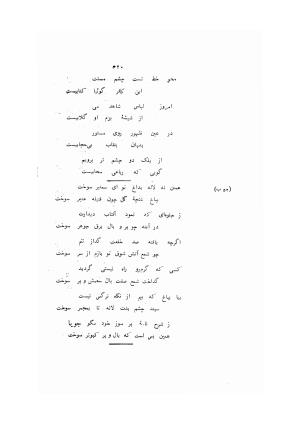 ۵۲۰
محو خط تست چشم مستت
این کافر گویا کتابیست
امروز لباس شاهد می
از شیشهٔ بزم او گلابیست
در عین ظهور روی مستور
بنقاب بی‌حجابیست
از یک دو چشم تر برویم
گویی که رباعی سحابیست
همین نه لاله بداغ تو ای سمنبر سوخت
بباغ غنچهٔ گل چون فتیله عنبر سوخت
ز جلوه‌ای که نمود آفتاب دیدارت
در آینه چو پر و بال برق جوهر سوخت
اگرچه یافته صد خلعت گداز تنم
چو شمع آتش شوق تو بازم از سر سوخت
کسی که گرم‌رو راه نیستی گردید
گداخت شمع صفت بال سعیش و پر سوخت
بیا بباغ که بیم از نگه نرگس نیست
سپند چشم بدت لاله تا بمجمر سوخت
ز شرح نامهٔ پر سوز خود مگو جویا
همین بس است که بال و پر کبوتر سوخت